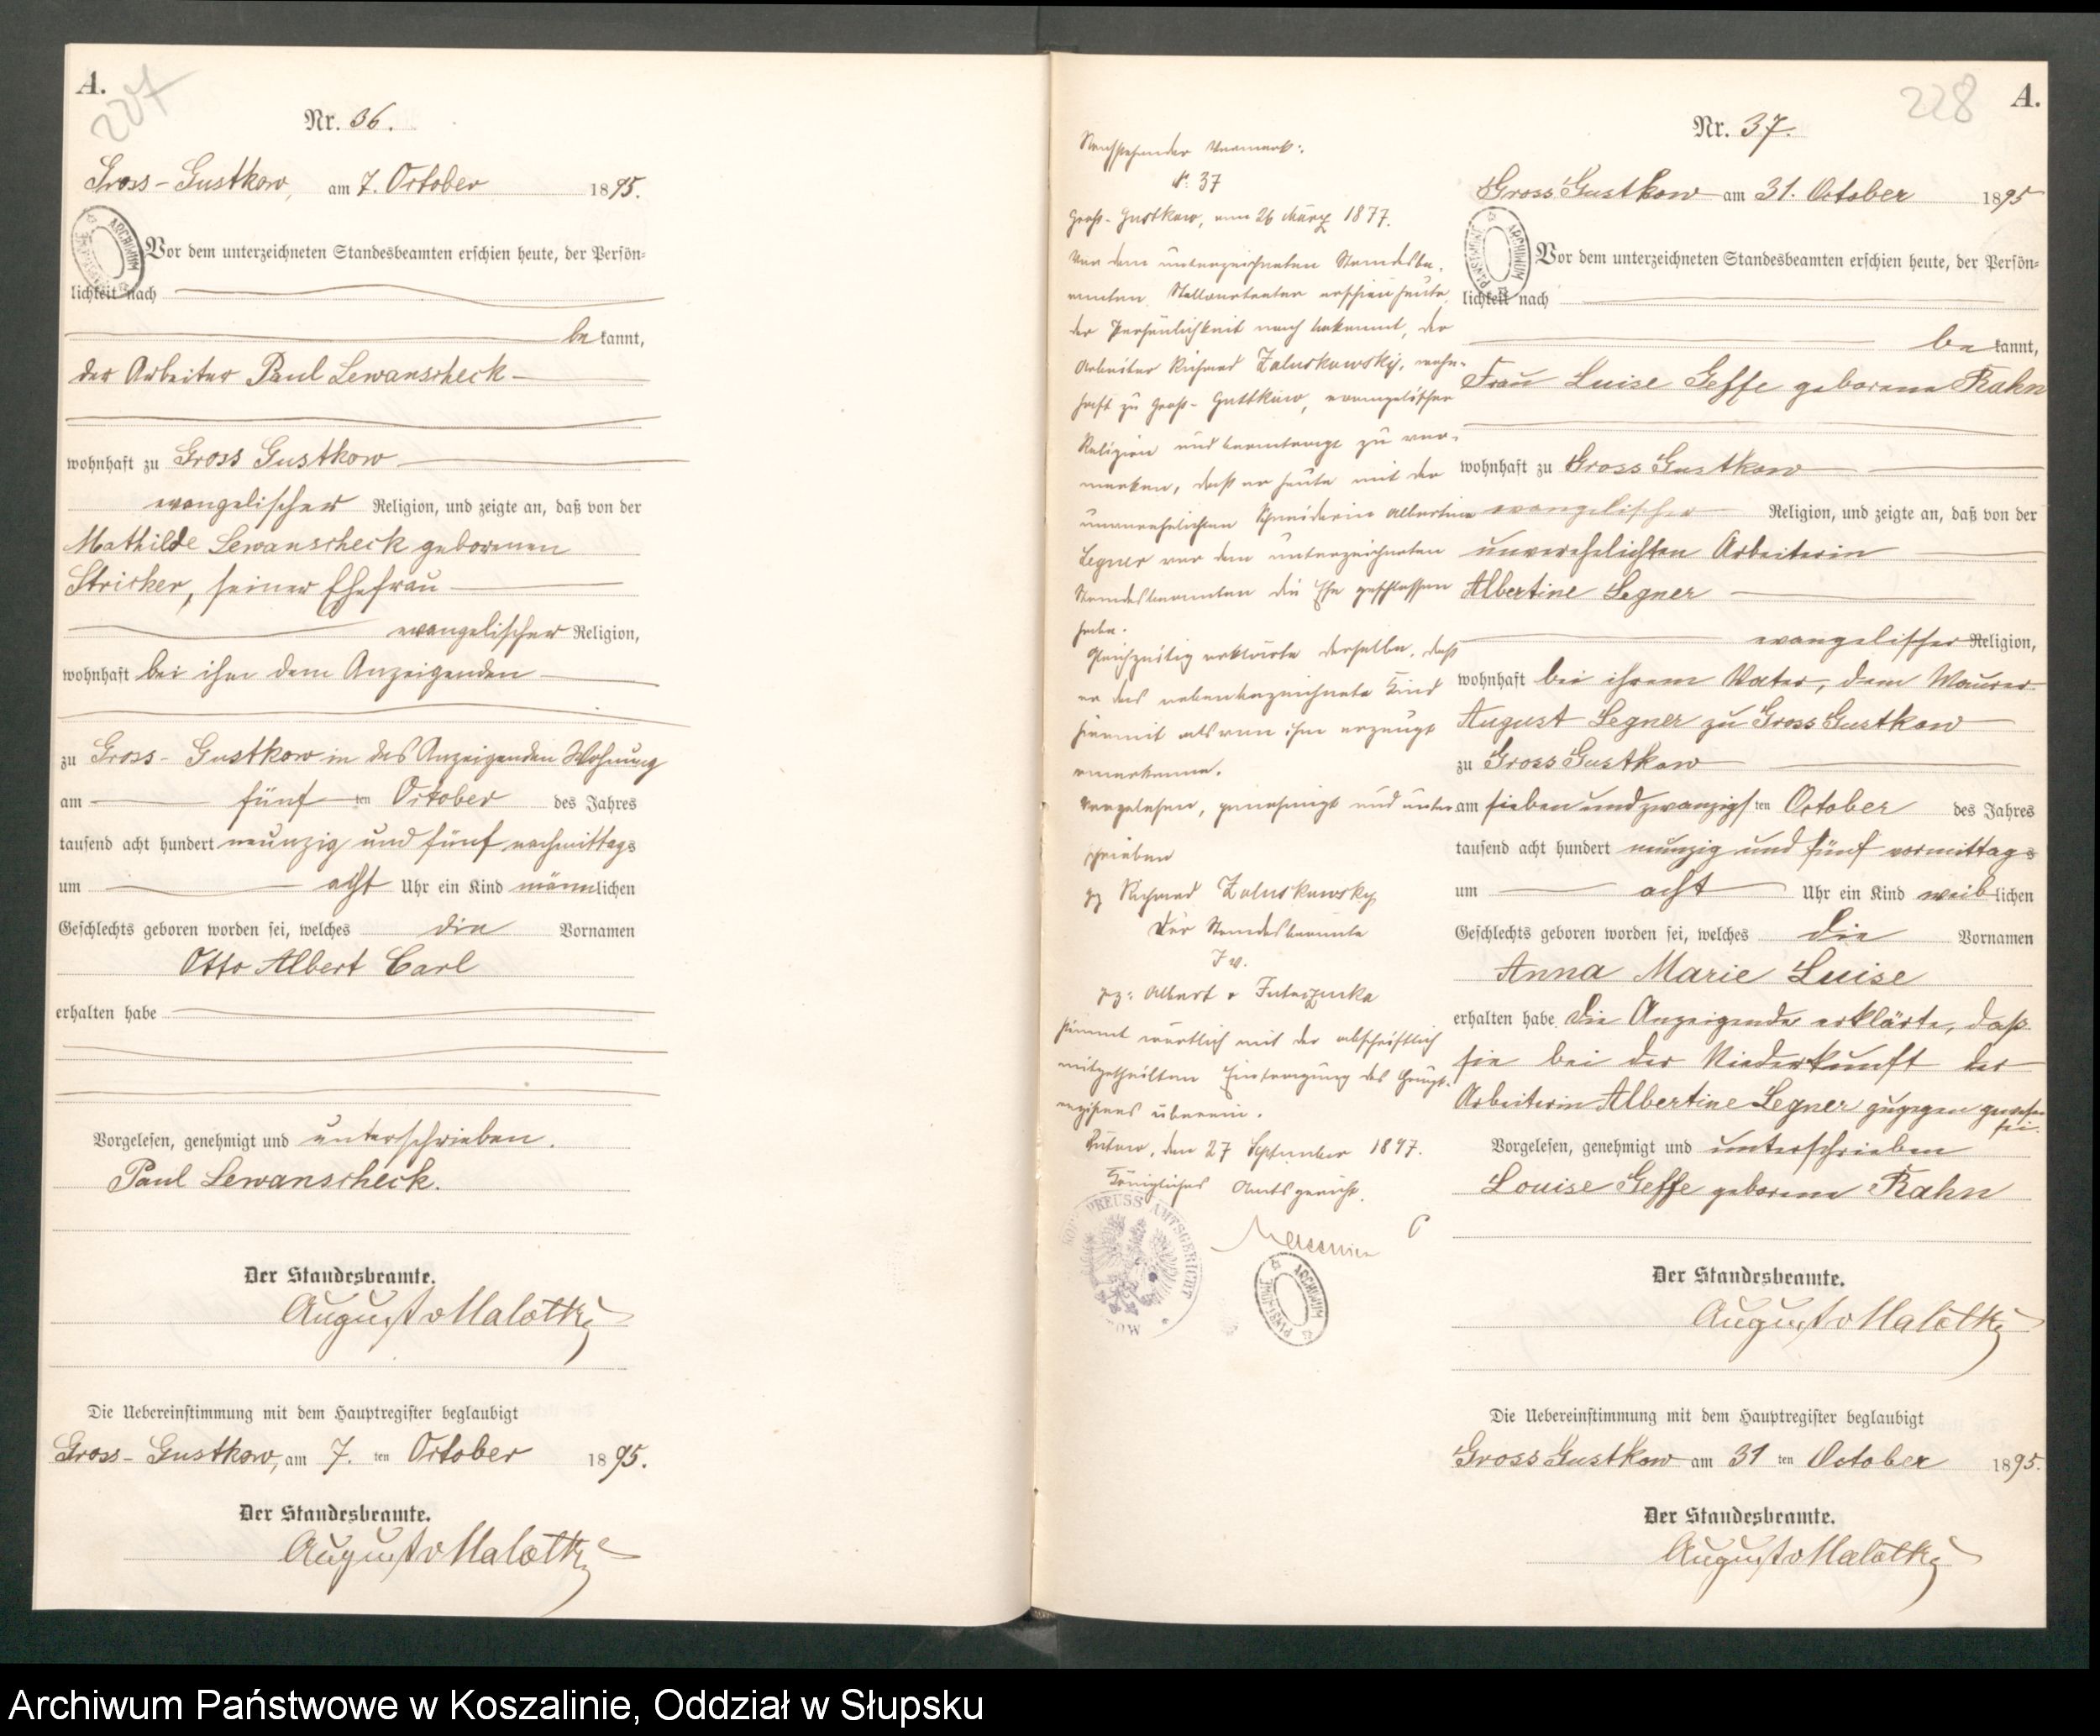 A.
227
Nr. 36.
Gross-Gustkow, am 7. October 1895.
Vor dem unterzeichneten Standesbeamten erschien heute, der Persön-
lichkeit nach
bekannt,
der Arbeiter Paul Lewanscheck
wohnhaft zu Gross Gustkow
evangelischer Religion, und zeigte an, daß von der
Mathilde Lewanscheck geborenen
Stricker, seiner Ehefrau
evangelischer Religion,
wohnhaft bei ihm dem Anzeigenden
zu Gross-Gustkow in des Anzeigenden Wohnung
am fünften October des Jahres
tausend acht hundert neunzig und fünf nachmittags
um acht Uhr ein Kind männlichen
Geschlechts geboren worden sei, welches die Vornamen
Otto Albert Carl
erhalten habe
Vorgelesen, genehmigt und unterschrieben.
Paul Lewanscheck.
Der Standesbeamte.
August v Malottky
Die Uebereinstimmung mit dem Hauptregister beglaubigt
Gross-Gustkow, am 7. ten October 1895.
Der Standesbeamte.
August v Malottky
Nachstehender Vermerk:
N: 37
Groß-Gustkow, am 26 März 1877.
Vor dem unterzeichneten Standesbe-
amten Stellvertreter erschien heute,
der Persönlichkeit nach bekannt, der
Arbeiter Richard Zaluskowsky, wohn-
haft zu Groß-Gustkow, evangelischer
Religion und beantragt zu ver-
merken, daß er heute mit der
unverehelichten Schneiderin Albertine
Legner vor dem unterzeichneten
Standesbeamten die Ehe geschlossen
habe.
Gleichzeitig erklärte derselbe, daß
er das nebenbezeichnete Kind
hiermit als von ihm erzeugt
anerkenne.
Vorgelesen, genehmigt und unter
schrieben
gz Richard Zaluskowsky
Der Standesbeamte
J v.
gz: Albert v
stimmt wörtlich mit der abschriftlich
mitgetheilten Eintragung des Haupt-
registers überein.
Bütow, den 27 September 1897.
Königliches Amtsgericht.
KÖN. PREUSS AMTSGERICHT
ARCHIWUM PAŃSTWOWE
A.
228
Nr. 37.
Gross Gustkow am 31. October 1895
Vor dem unterzeichneten Standesbeamten erschien heute, der Persön-
lichkeit nach
bekannt,
Frau Luise Geffe geborene Rahn
wohnhaft zu Gross Gustkow
evangelischer Religion, und zeigte an, daß von der
unverehelichten Arbeiterin
Albertine Legner
evangelischer Religion,
wohnhaft bei ihrem Vater, dem Maurer
August Legner zu Gross Gustkow
zu Gross Gustkow
am sieben und zwanzigsten October des Jahres
tausend acht hundert neunzig und fünf vormittags
um acht Uhr ein Kind weiblichen
Geschlechts geboren worden sei, welches die Vornamen
Anna Marie Luise
erhalten habe Die Anzeigende erklärte, daß
sie bei der Niederkunft der
Arbeiterin Albertine Legner zugegen gewesen
sei.
Vorgelesen, genehmigt und unterschrieben
Louise Geffe geborene Rahn
Der Standesbeamte.
August v Malottky
Die Uebereinstimmung mit dem Hauptregister beglaubigt
Gross Gustkow am 31 ten October 1895.
Der Standesbeamte.
August v Malottky
Archiwum Państwowe w Koszalinie, Oddział w Słupsku